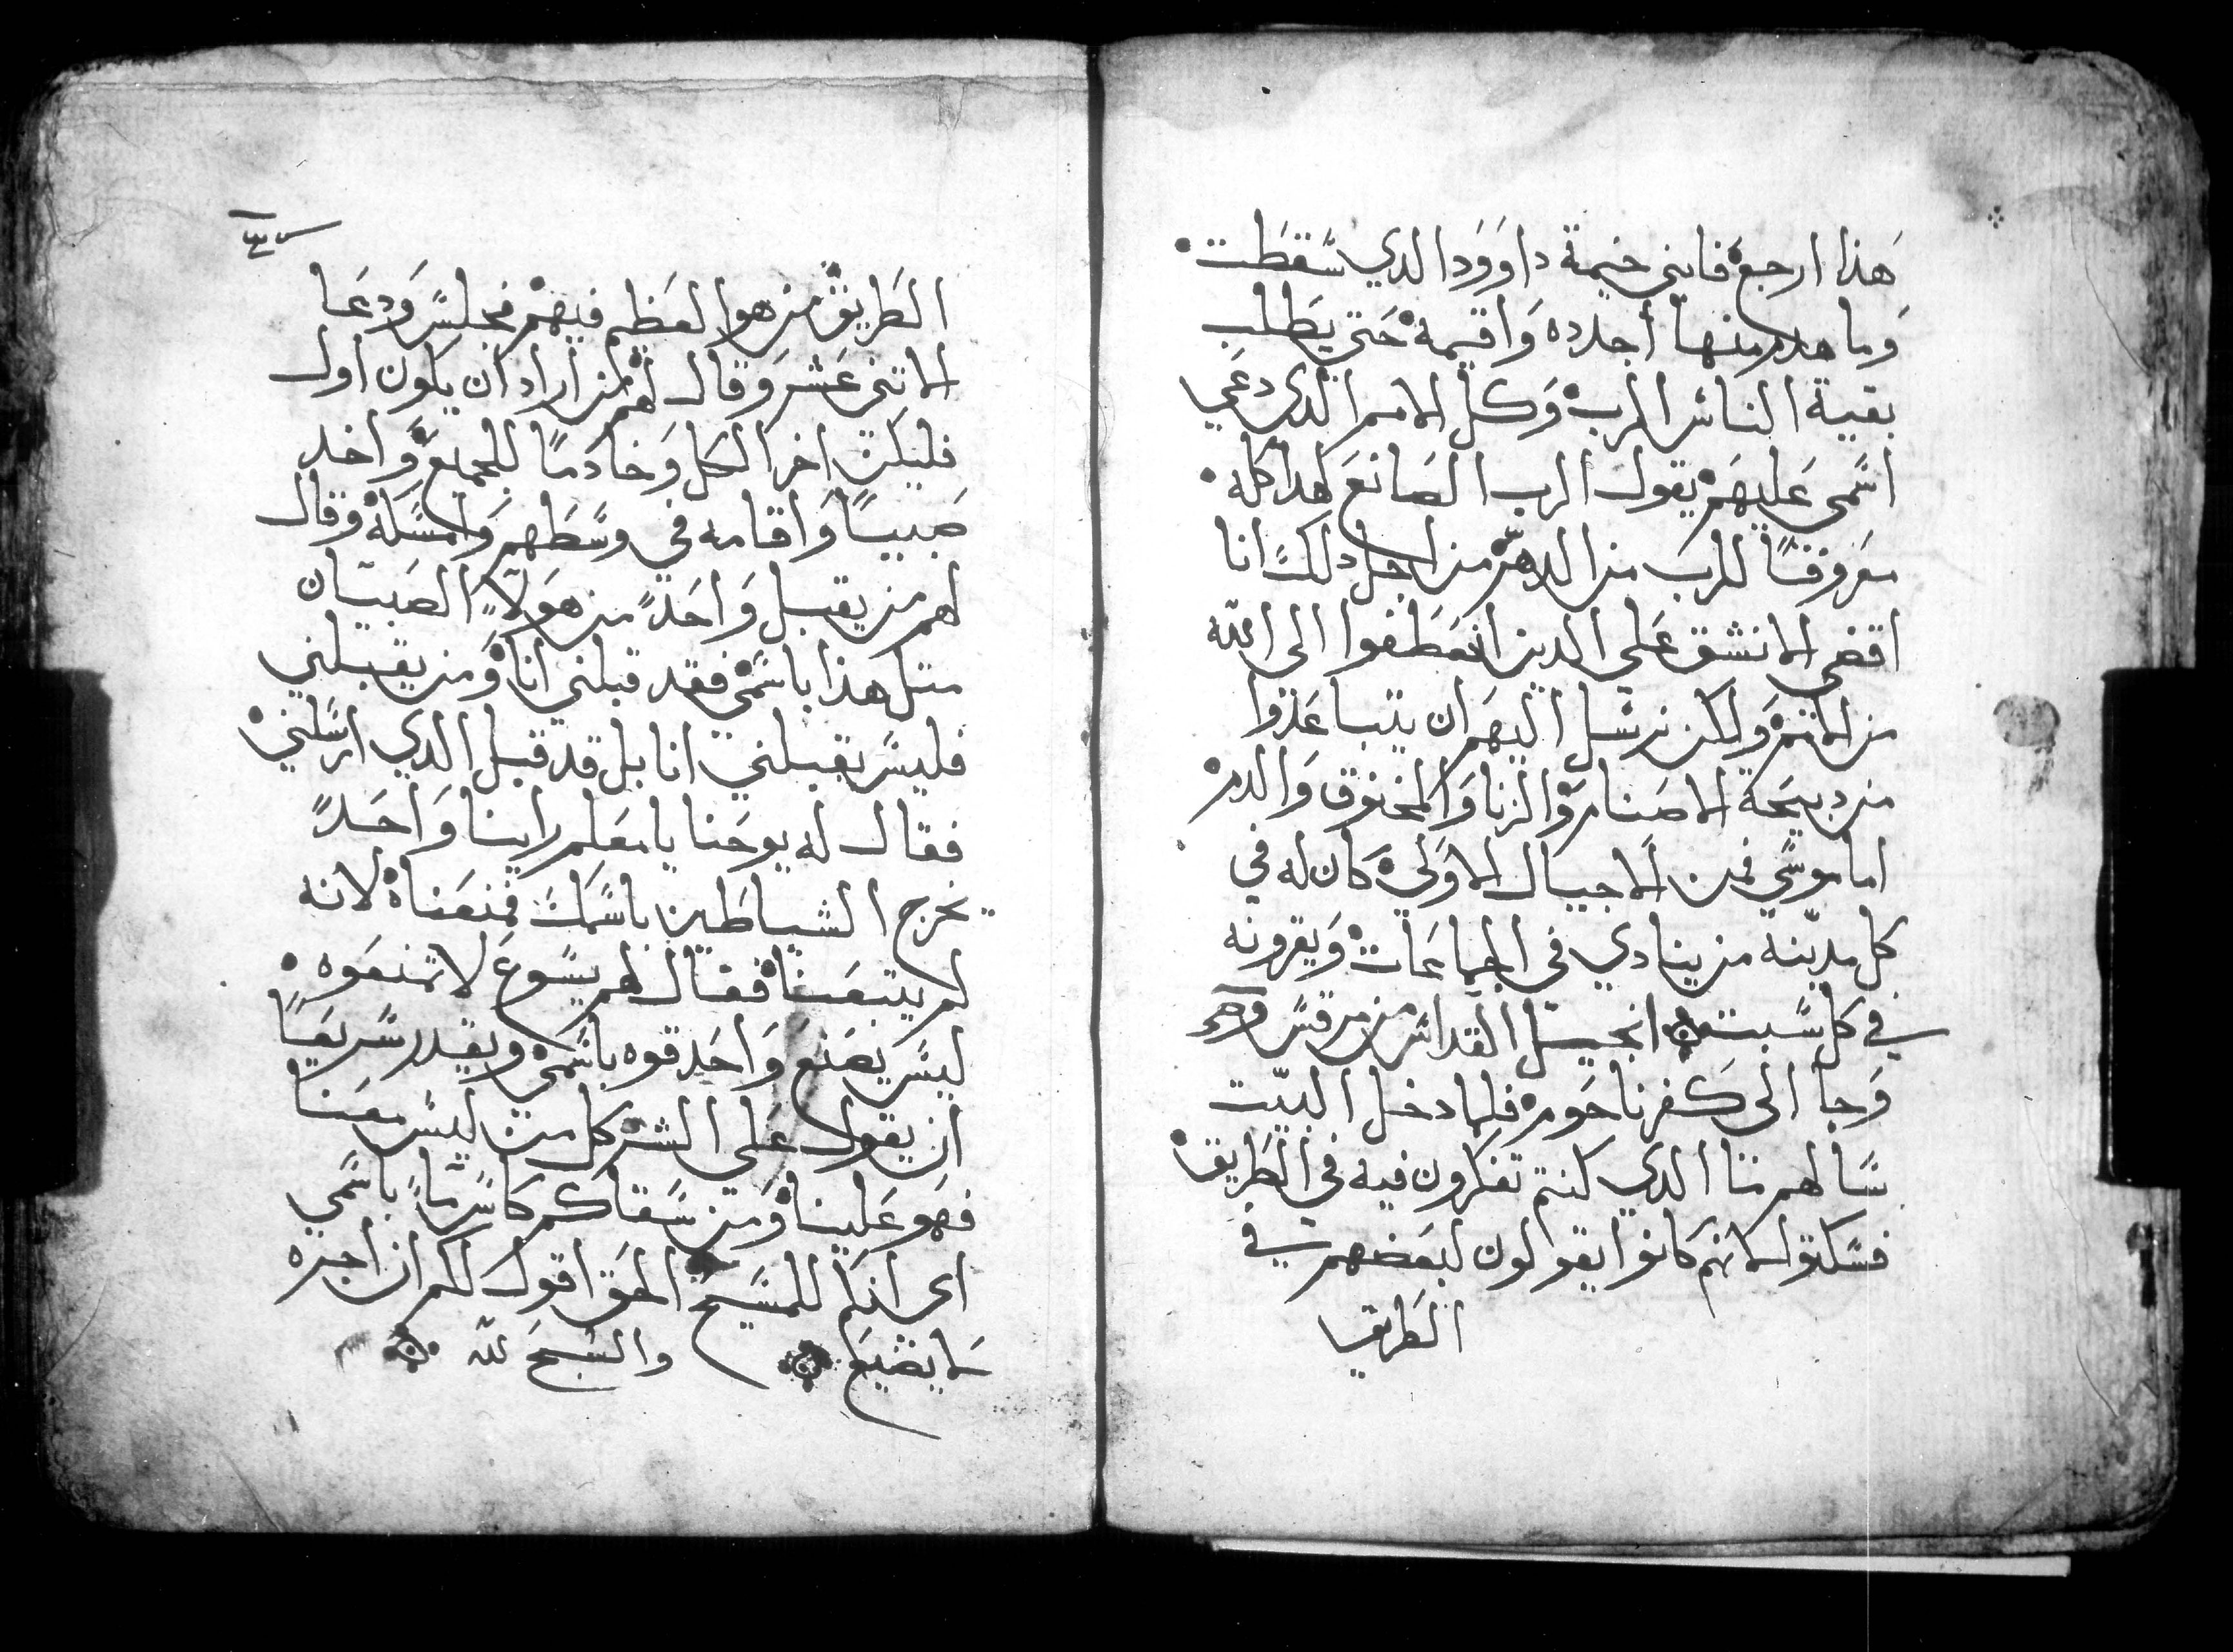 هَذا ارجع فابني خيمة داوَوَد الدي سَقطَت
وَما هدم منها أجدده وَاقيمه حَتي يطَلب
بقية الناس الرب وَكل الامم الدي دعَي
اسَمى عَليهَم يقول الرب الصَانعَ هدا كله
معَروفاً للرب من الدهر من اجل دلك انا
اقضي لانشق عَلي الدين انعَطَفوا الى الله
من الامم وَلكن نرسَل اليهَم ان يتباعَدوا
من دبيحَة الاصَنام وَالزنا وَالمخنوق وَالدم
اما موسَي فمن الاجيال الاوَلي كان له في
كل مدينه من ينادي في الجماعَات وَيقرونه
في كل سَبت انجيل القداس من مرقسَ
وَجا الى كَفرناحَوم فلما دخل البيت
سَالهم ما الدي كنتم تفكرون فيه في الطَريق
فسَكتوا لانهم كانوا يقولون لبعَضهم في
الطَريق
الطَريق من هوا العَظيم فيهَم فجلسَ وَدعَا
الاتني عَشر وَقال لهَم من اراد ان يكون اول
فليكن اخر الكل وَخادماً للجميع وَاخد
صَبيا وَاقامه في وسَطَهم وَامسَكه وَقال
لهم من يقبل وَاحَداً من هوَلاٍ الصَبيان
متل هذا باسَمي فقد قبلني انا وَمن يقبلني
فليسَ يقبلني انا بل قد قبل الدي ارسَلني
فقال له يوحَنا يا معَلم راينا وَاحَداً
يخرج الشياطَين باسَمك فمنعَناه لانه
لم يتبعَنا فقال لهم يسَوعَ لا تمنعَوه
ليسَ يصَنعَ وَاحَد قوه باسَمي ويقدر سَريعَاً
ان يقول عَلي الشر كل من ليسَ معَنا
فهَو عَلينا وَمن سَقاكم كاسَ ماً باسَمي
اي انكم للمسَيح الحَق اقول لكم ان اجره
لا يضيعَ والسَبح لله